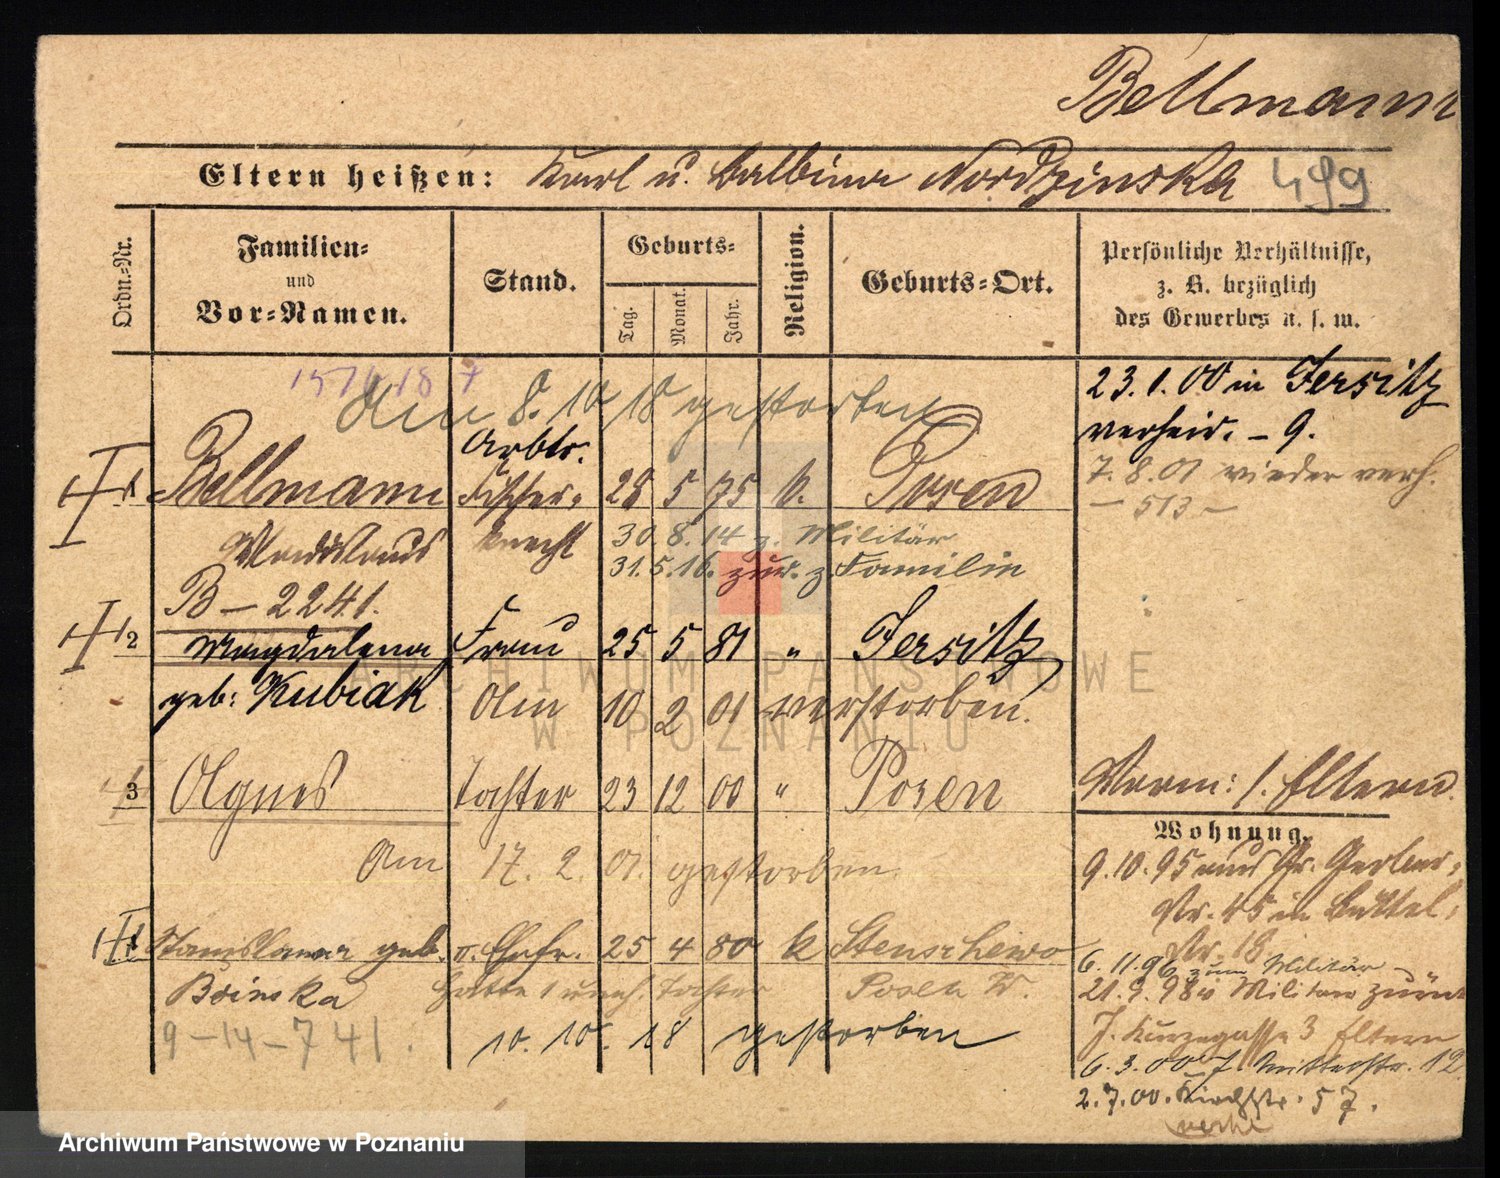 Bellmann
Eltern heißen: Karl u. Balbina Nordzinska 499
Ordn.-Nr.
Familien-
und
Vor-Namen.
Stand.
Geburts-
Tag.
Monat.
Jahr.
Religion.
Geburts-Ort.
Persönliche Verhältnisse,
z. B. bezüglich
des Gewerbes u. s. w.
23.1.00 in Jersitz
verheir. - 9.
7.8.01 wieder verh.
- 513 -
Am 8.10 18 gestorben
Arbtr.
1 Bellmann Fischer- 28 5 75 k. Posen
Wladislaus knecht 30 8.14 z. Militär
31.5.16. zur. z. Familie
B - 2241.
2 Magdalena Frau 25 5 81 " Jersitz
geb: Kubiak Am 10 2 01 verstorben.
3 Agnes Tochter 23 12 00 " Posen
Am 17. 2. 01. gestorben.
Stanislawa geb. II. Ehefr. 25 4 80 k Stenschewo
Bsinska hatte 1 uneh. Tochter Posen W.
9-14-741. 10. 10. 18 gestorben
Vorm: s. Eltern
Wohnung.
9.10.95 aus Gr. Gerber-
Nr. 45 in Büttel-
Nr. 18
6.11.96 zum Militär
21.9.98 v Militär zurück
J. Kurzegasse 3 Eltern
6.3.00 J. Mittelstr. 12
2.7.00. Kirchstr. 57.
Archiwum Państwowe w Poznaniu
ARCHIWUM PAŃSTWOWE
W POZNANIU